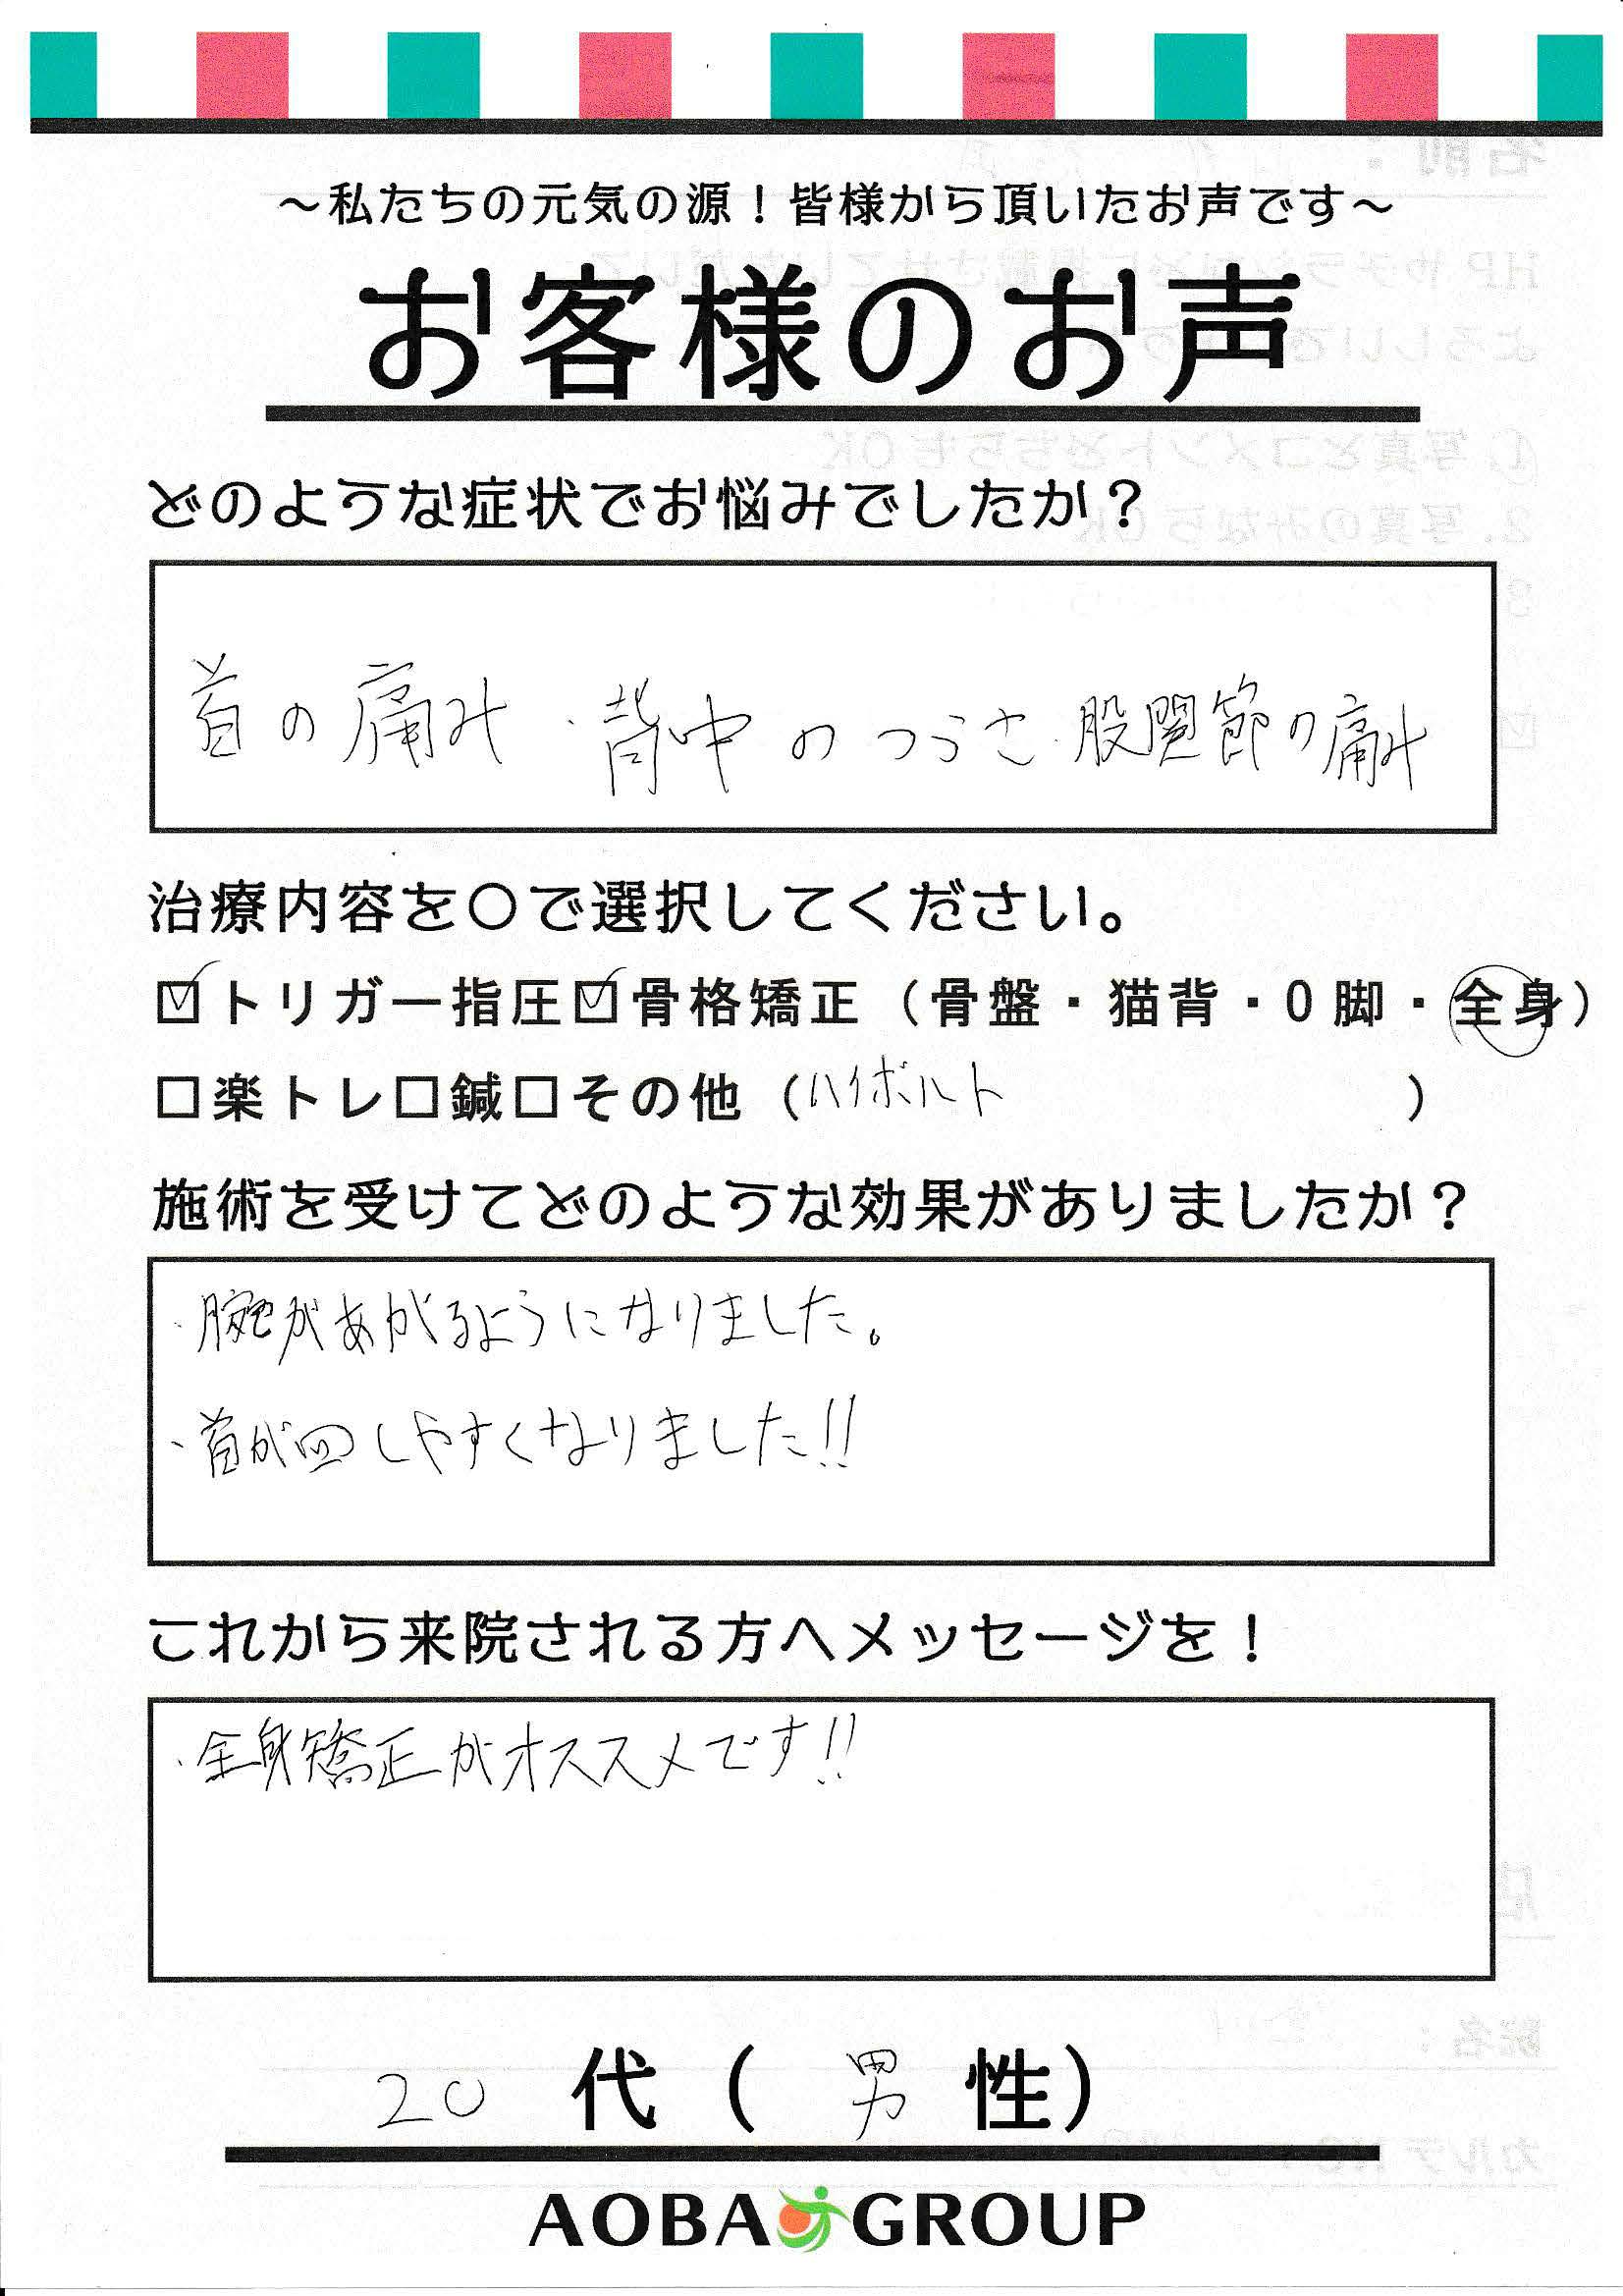 ～私たちの元気の源！皆様から頂いたお声です～
お客様のお声
どのような症状でお悩みでしたか？
首の痛み・背中のつらさ・股関節の痛み
治療内容を〇で選択してください。
☑トリガー指圧☑骨格矯正（骨盤・猫背・O脚・全身）
□楽トレ□鍼□その他（ハイボルト）
施術を受けてどのような効果がありましたか？
・腕があがるようになりました。
・首が回しやすくなりました!!
これから来院される方へメッセージを！
・全身矯正がオススメです!!
20代（男性）
AOBA GROUP